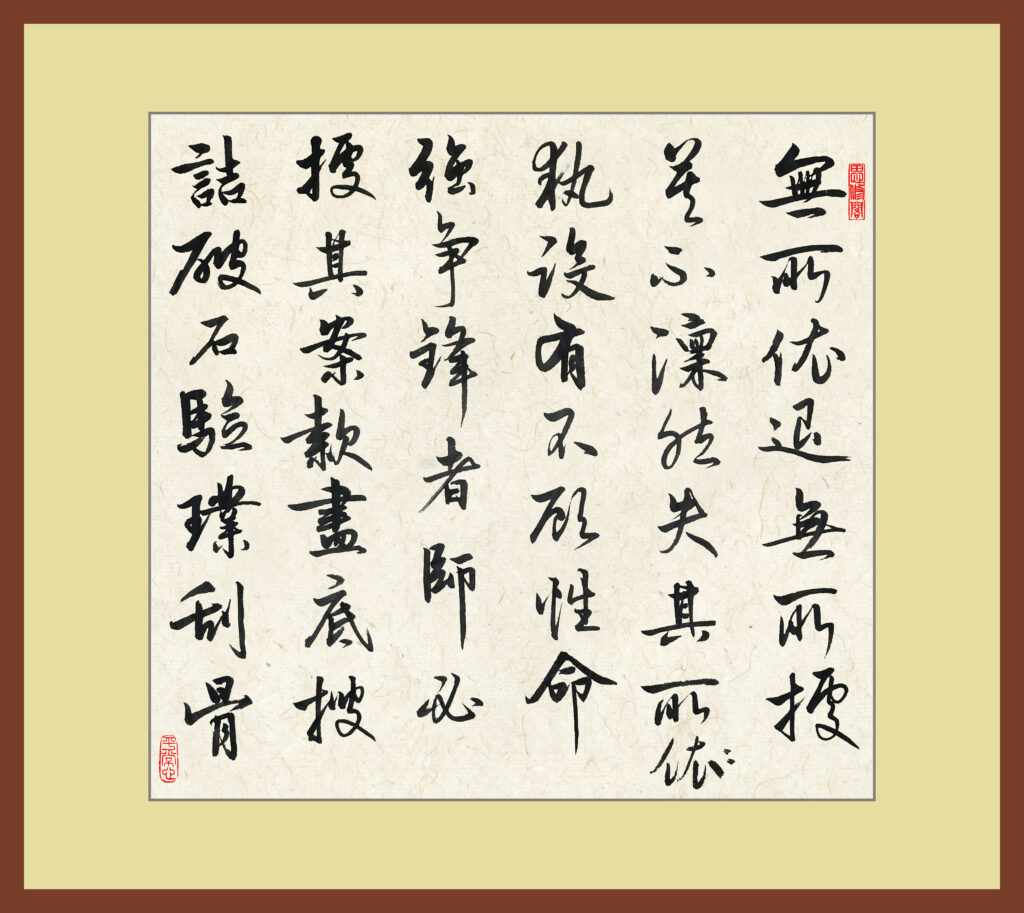 思修閣
無所依退無所據
莫不凜然失其所依
執設有不顧性命
強争鋒者師必
據其案款盡底搜
詰破石驗璞刮骨
平常心